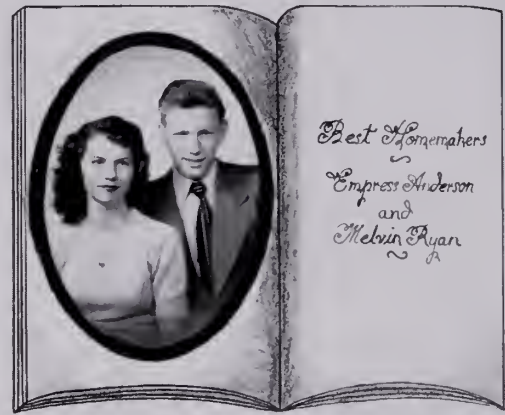 Best Homemakers
Empress Anderson
and
Melvin Ryan